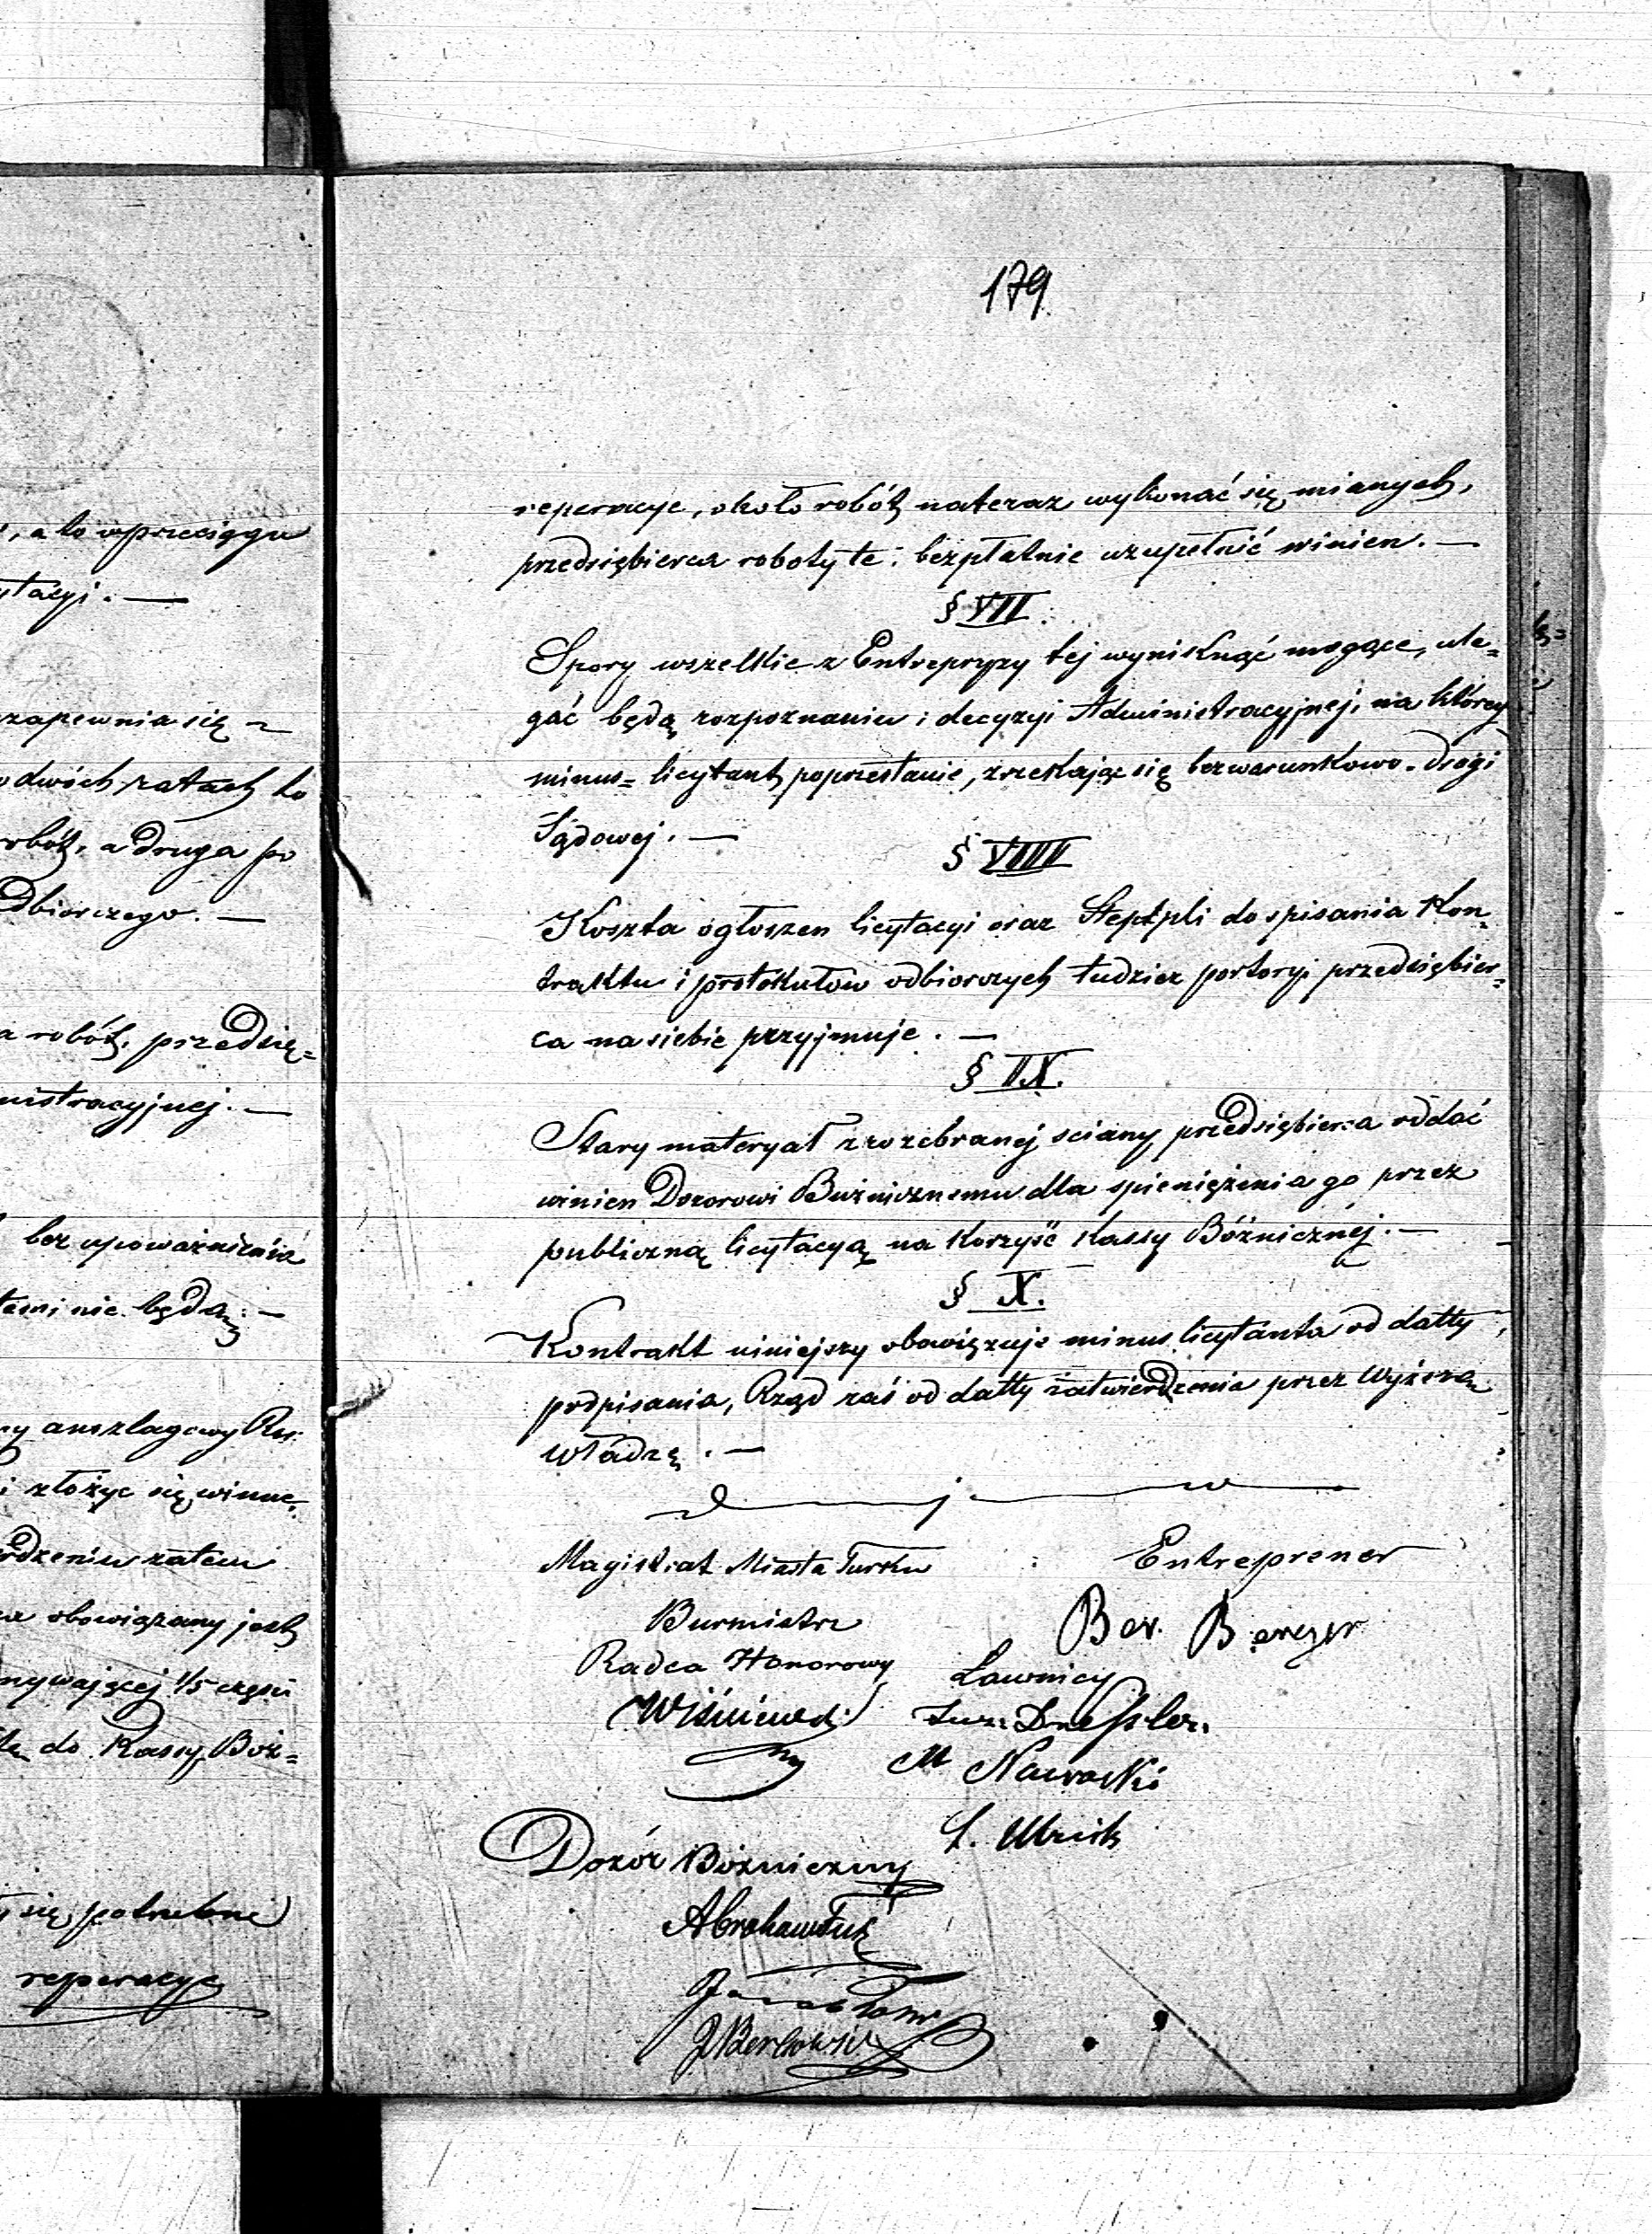 , a to wprzeciągu
ytacyi. —
zapewnia się
dwóch ratach to
robót, a druga po
Odbiorczego. —
a robót, przedsię=
nistracyjnej. —
bez upoważnienia
temi nie będą. —
ny anszlagowy
i złożyc się winne
rdzeniu zatem
obowiązany jest
nywającej 1/5 części
do Kassy Boż=
się potrzebne
reperacye
179
reperacye, około robót nateraz wykonać się mianych,
przedsiębierca roboty te bezpłatnie uzupełnić winien. —
§ VII.
Spory wszelkie z Entrepryzy tej wyniknąć mogące, ule=
gać będą rozpoznaniu i decyzyi Administracyjnej, na którey
minus= licytant poprzestanie, zrzekając się bezwarunkowo drogi
Sądowej. —
§ VIIII
Koszta ogłoszen licytacyi oraz Stępli do spisania Kon=
traktu i protokułów odbiorczych tudziez portoryi przedsiębier=
ca na siebie przyjmuje. —
§ IX.
Stary materyał z rozebranej sciany, przedsiębierca oddać
winien Dozorowi Bużnicznemu dla spieniężenia go przez
publiczną licytacyą na korzyść Kassy Bóżnicznéj. —
§ X.
Kontrakt niniejszy obowiązuje minus licytanta od datty
podpisania, Rząd zaś od datty zatwierdzenia przez Wyższą
władzę. —
Magistrat Miasta Turku
Entreprener
Burmistrz
Ber. Berger
Radca Honorowy
Ławnicy
Wiśniewski
M Nawrocki
Dozór Bożniczny